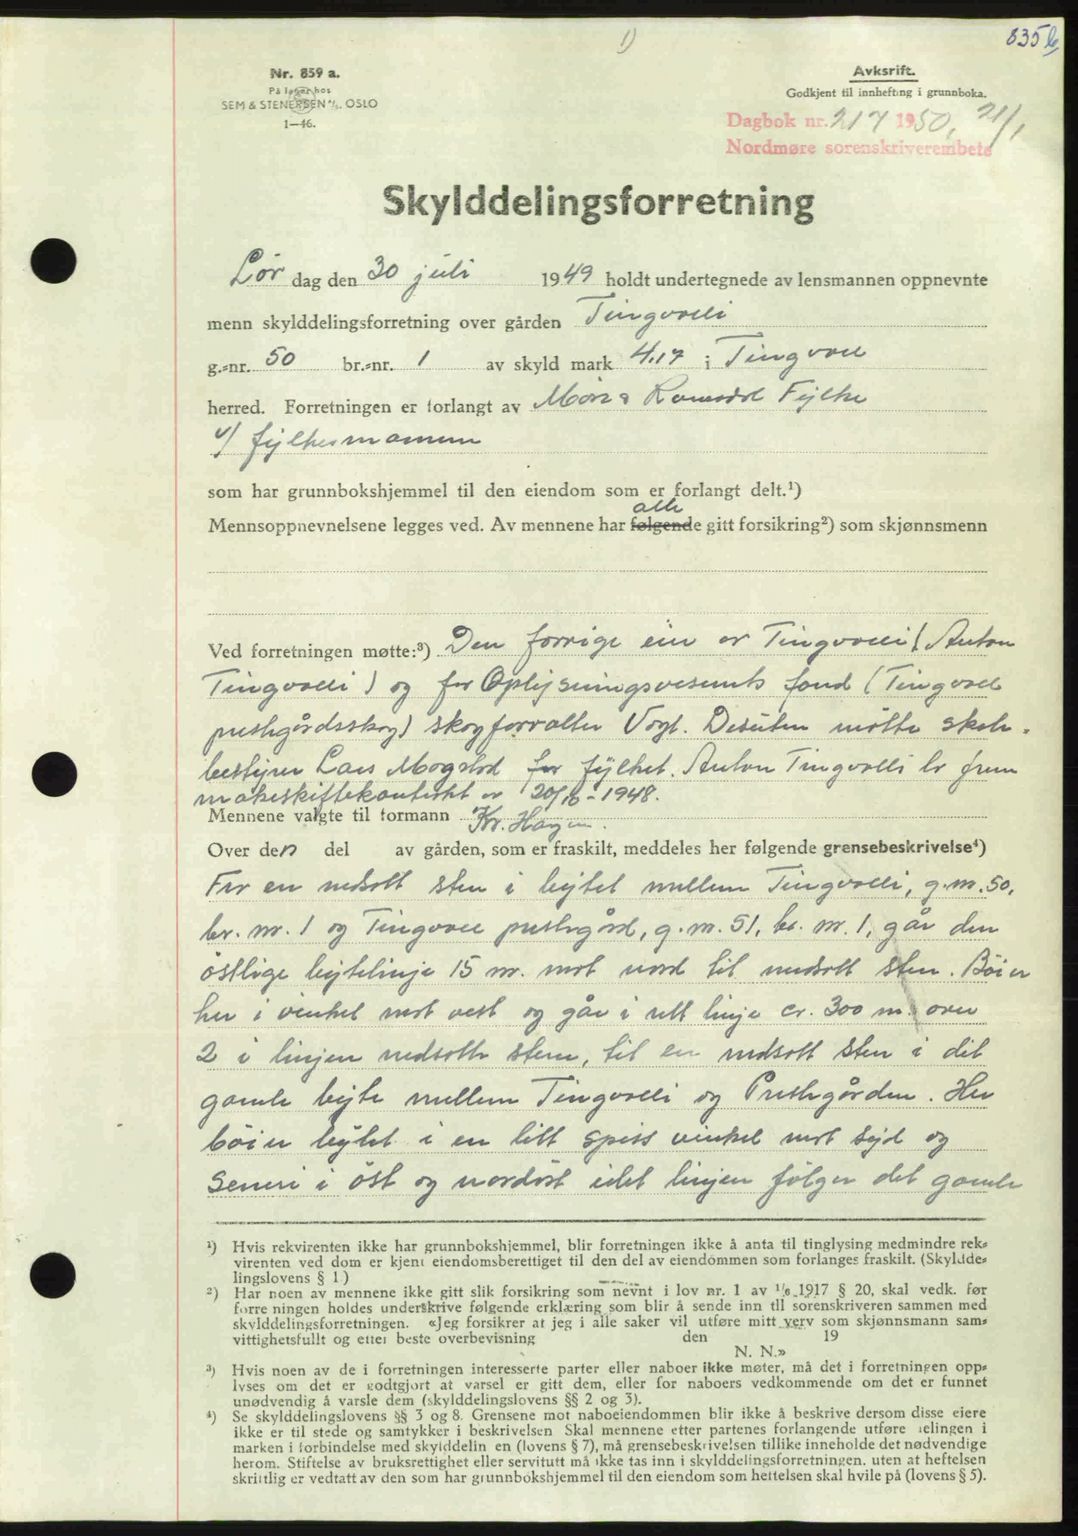 1)
835 b
Nr. 859 a.
På lager hos
SEM & STENERSEN A/S. OSLO
1—46.
Avksrift.
Godkjent til innhefting i grunnboka.
Dagbok nr. 217 1950, 21/1
Nordmøre sorenskriverembete
Skylddelingsforretning
Lør dag den 30 juli 1949 holdt undertegnede av lensmannen oppnevnte
menn skylddelingsforretning over gården Tingvolli
g.-nr. 50 br.-nr. 1 av skyld mark 4.17 i Tingvoll
herred. Forretningen er forlangt av Møre & Romsdal Fylke
v/ fylkesmannen
som har grunnbokshjemmel til den eiendom som er forlangt delt.¹)
alle
Mennsoppnevnelsene legges ved. Av mennene har følgende gitt forsikring²) som skjønnsmenn
Ved forretningen møtte:³) Den forrige eier av Tingvolli (Anton
Tingvolli) og for Oplysningsvesenets fond (Tingvoll
prestegårdsskog) skogforvalter Vogt. Desuten møtte skole-
bestyrer Lars Mogstad for fylket. Anton Tingvolli la frem
makeskiftekontrakt av 20/10-1948.
Mennene valgte til formann Kr. Hagen.
Over den del av gården, som er fraskilt, meddeles her følgende grensebeskrivelse⁴)
Fra en nedsatt sten i bytet mellem Tingvolli, g.nr. 50,
br. nr. 1 og Tingvoll prestegård, g.nr. 51, br. nr. 1, går den
østlige bytelinje 15 m. mot nord til nedsatt sten. Bøier
her i vinkel mot vest og går i rett linje ca. 300 m. over
2 i linjen nedsatte stene, til en nedsatt sten i det
gamle byte mellem Tingvolli og Prestegården. Her
bøier bytet i en litt spiss vinkel mot syd og
senere i øst og nordøst idet linjen følger det gamle
¹) Hvis rekvirenten ikke har grunnbokshjemmel, blir forretningen ikke å anta til tinglysing medmindre rek-
virenten ved dom er kjent eiendomsberettiget til den del av eiendommen som forlanges fraskilt. (Skyldde-
lingslovens § 1)
²) Har noen av mennene ikke gitt slik forsikring som nevnt i lov nr. 1 av 1/6 1917 § 20, skal vedk. før
forretningen holdes underskrive følgende erklæring som blir å sende inn til sorenskriveren sammen med
skylddelingsforretningen. «Jeg forsikrer at jeg i alle saker vil utføre mitt verv som skjønnsmann sam-
vittighetsfullt og etter beste overbevisning den 19
N. N.»
³) Hvis noen av de i forretningen interesserte parter eller naboer ikke møter, må det i forretningen opp-
lyses om det er godtgjort at varsel er gitt dem, eller for naboers vedkommende om det er funnet
unødvendig å varsle dem (skylddelingslovens §§ 2 og 3).
⁴) Se skylddelingslovens §§ 3 og 8. Grensene mot naboeiendommen blir ikke å beskrive dersom disse eiere
ikke er til stede og samtykker i beskrivelsen Skal mennene etter partenes forlangende utføre delingen i
marken i forbindelse med skylddelingen (lovens § 7), må grensebeskrivelsen tillike inneholde det nødvendige
herom. Stiftelse av bruksrettighet eller servitutt må ikke tas inn i skylddelingsforretningen, uten at heftelsen
skriftlig er vedtatt av den som har grunnbokshjemmel til den eiendom som heftelsen skal hvile på (lovens § 5).